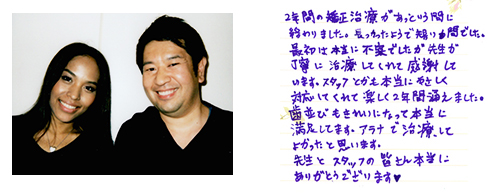 2年間の矯正治療があっという間に
終わりました。長かったようで短い間でした。
最初は本当に不安でしたが先生が
丁寧に治療してくれて感謝して
います。スタッフとかも本当にやさしく
対応してくれて楽しく2年間通えました。
歯並びもきれいになって本当に
満足してます。アラナで治療して
よかったと思います。
先生とスタッフの皆さん本当に
ありがとうございます♥